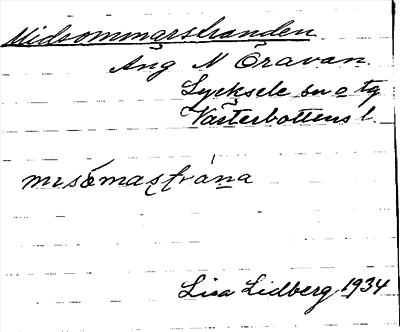 Midsommarstranden
Äng N Öravan.
Lycksele sn o tg
Västerbottens l.
Lisa Lidberg 1934